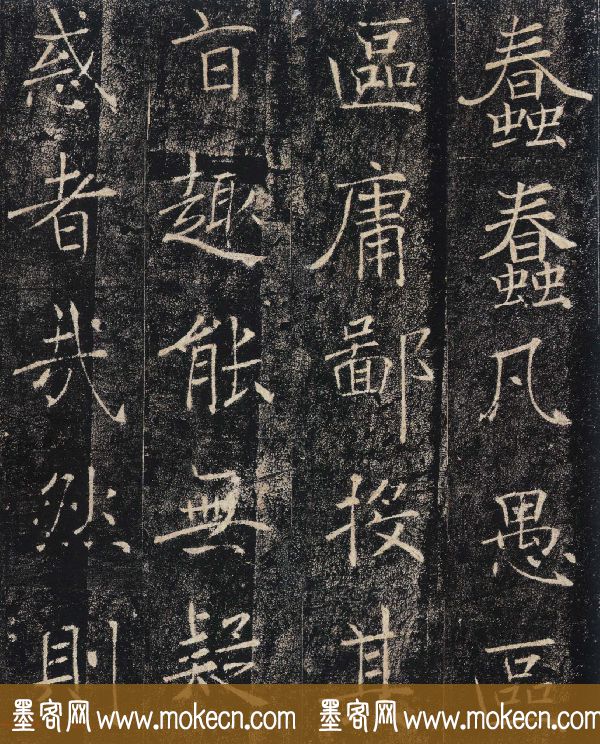 蠢蠢凡愚區
區庸鄙投其
旨趣能無疑
惑者哉然則
墨客网 www.mokecn.com 墨客网 www.mokecn.com